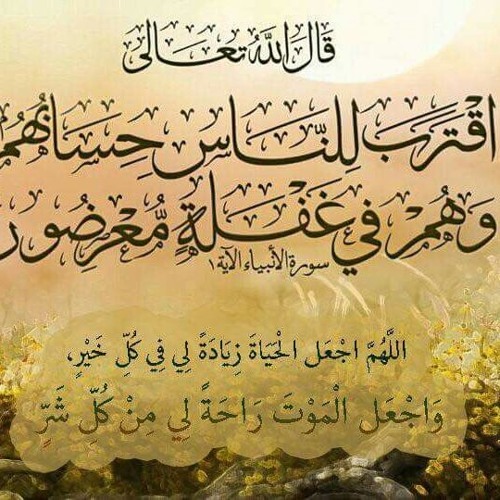 قَالَ اللهُ تَعَالَى
اقْتَرَبَ لِلنَّاسِ حِسَابُهُمْ
وَهُمْ فِي غَفْلَةٍ مُّعْرِضُونَ
سورة الأنبياء الآية ١
اللَّهُمَّ اجْعَل الْحَيَاةَ زِيَادَةً لِي فِي كُلِّ خَيْرٍ،
وَاجْعَل الْمَوْتَ رَاحَةً لِي مِنْ كُلِّ شَرٍّ